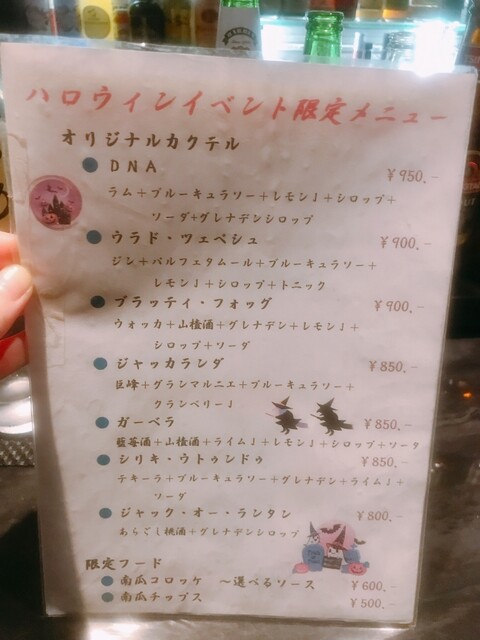 ハロウィンイベント限定メニュー
オリジナルカクテル
● DNA ¥950.-
ラム+ブルーキュラソー+レモンJ+シロップ+
ソーダ+グレナデンシロップ
● ウラド・ツェペシュ ¥900.-
ジン+パルフェタムール+ブルーキュラソー+
レモンJ+シロップ+トニック
● ブラッティ・フォッグ ¥900.-
ウォッカ+山査酒+グレナデン+レモンJ+
シロップ+ソーダ
● ジャッカランダ ¥850.-
巨峰+グランマルニエ+ブルーキュラソー+
クランベリーJ
● ガーベラ ¥850.-
藍苺酒+山査酒+ライムJ+レモンJ+シロップ+ソーダ
● シリキ・ウトゥンドゥ ¥850.-
テキーラ+ブルーキュラソー+グレナデン+ライムJ+
ソーダ
● ジャック・オー・ランタン ¥800.-
あらごし桃酒+グレナデンシロップ
限定フード
● 南瓜コロッケ ~選べるソース ¥600.-
● 南瓜チップス ¥500.-